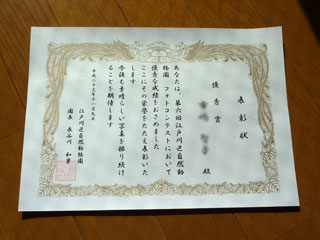 表彰状
優秀賞
殿
あなたは、第六回江戸川区自然動
物園 フォトコンテストにおいて
優秀な成績をおさめました
ここにその栄誉をたたえ表彰いた
します
今後も素晴らしい写真を撮り続け
ることを期待します
平成二十三年十一月九日
江戸川区自然動物園
園長 長谷川 和男